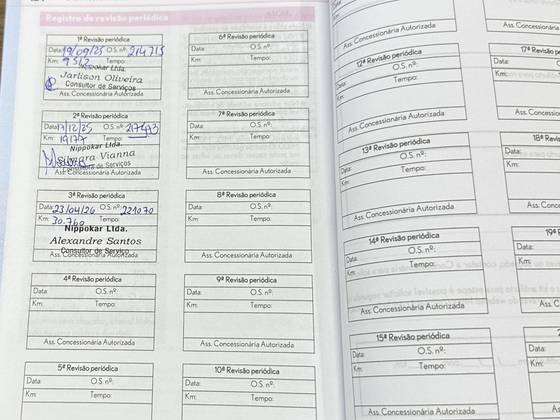 Registro de revisão periódica
1ª Revisão periódica
Data: 19/09/25 O.S. nº: 214715
Km: 9512 Tempo:
Nippokar Ltda.
Jarlison Oliveira
Consultor de Serviços
Ass. Concessionária Autorizada
2ª Revisão periódica
Data: 17/12/25 O.S. nº:
Km: 19177 Tempo:
Nippokar Ltda.
Silmara Vianna
Consultora de Serviços
Ass. Concessionária Autorizada
3ª Revisão periódica
Data: 23/04/26 O.S. nº: 221070
Km: 30.760
Nippokar Ltda.
Alexandre Santos
Consultor de Serviço
Ass. Concessionária Autorizada
4ª Revisão periódica
Data: O.S. nº:
Km: Tempo:
Ass. Concessionária Autorizada
5ª Revisão periódica
Data: O.S. nº:
Km: Tempo:
6ª Revisão periódica
Data: O.S. nº:
Km: Tempo:
Ass. Concessionária Autorizada
7ª Revisão periódica
Data: O.S. nº:
Km: Tempo:
Ass. Concessionária Autorizada
8ª Revisão periódica
Data: O.S. nº:
Km: Tempo:
Ass. Concessionária Autorizada
9ª Revisão periódica
Data: O.S. nº:
Km: Tempo:
Ass. Concessionária Autorizada
10ª Revisão periódica
Data: O.S. nº:
Km: Tempo:
Ass. Concessionária Autorizada
12ª Revisão periódica
Data: O.S. nº:
Km: Tempo:
Ass. Concessionária Autorizada
13ª Revisão periódica
Data: O.S. nº:
Km: Tempo:
Ass. Concessionária Autorizada
14ª Revisão periódica
Data: O.S. nº:
Km: Tempo:
Ass. Concessionária Autorizada
15ª Revisão periódica
Data: O.S. nº:
Km: Tempo:
Ass. Concessionária Autorizada
Ass. Concessi
17ª Revisão
Data:
Km:
Ass. Concessi
18ª Revis
Data:
Km:
Ass. Conces
19ª
Data:
Km:
Ass. C
2
Data:
Km:
Ass.